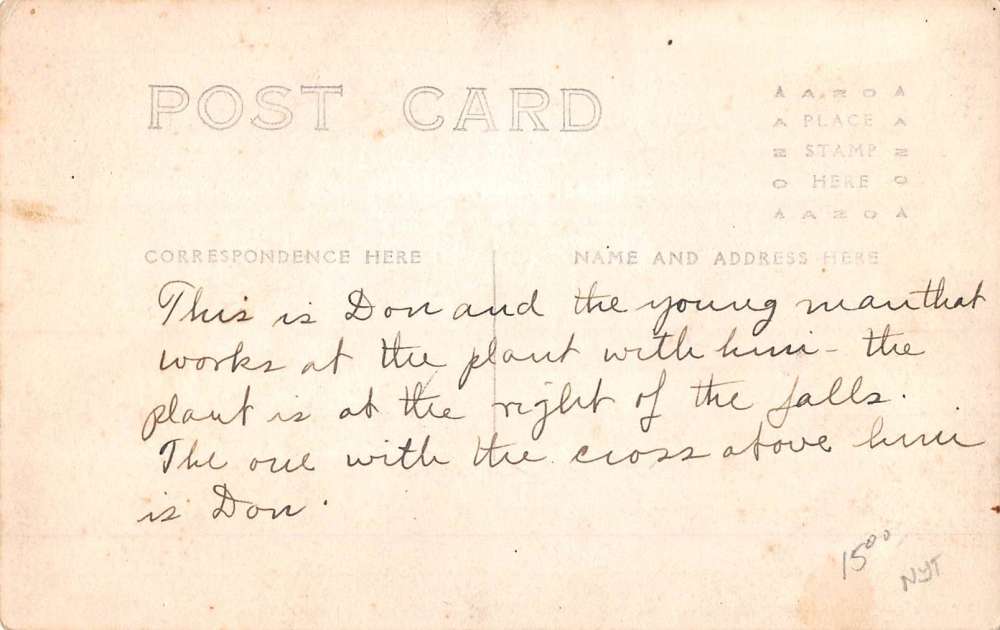 POST CARD
A AZO A
A PLACE A
Z STAMP Z
O HERE O
A AZO A
CORRESPONDENCE HERE
NAME AND ADDRESS HERE
This is Don and the young man that
works at the plant with him - the
plant is at the right of the falls.
The one with the cross above him
is Don.
15.00
NYT